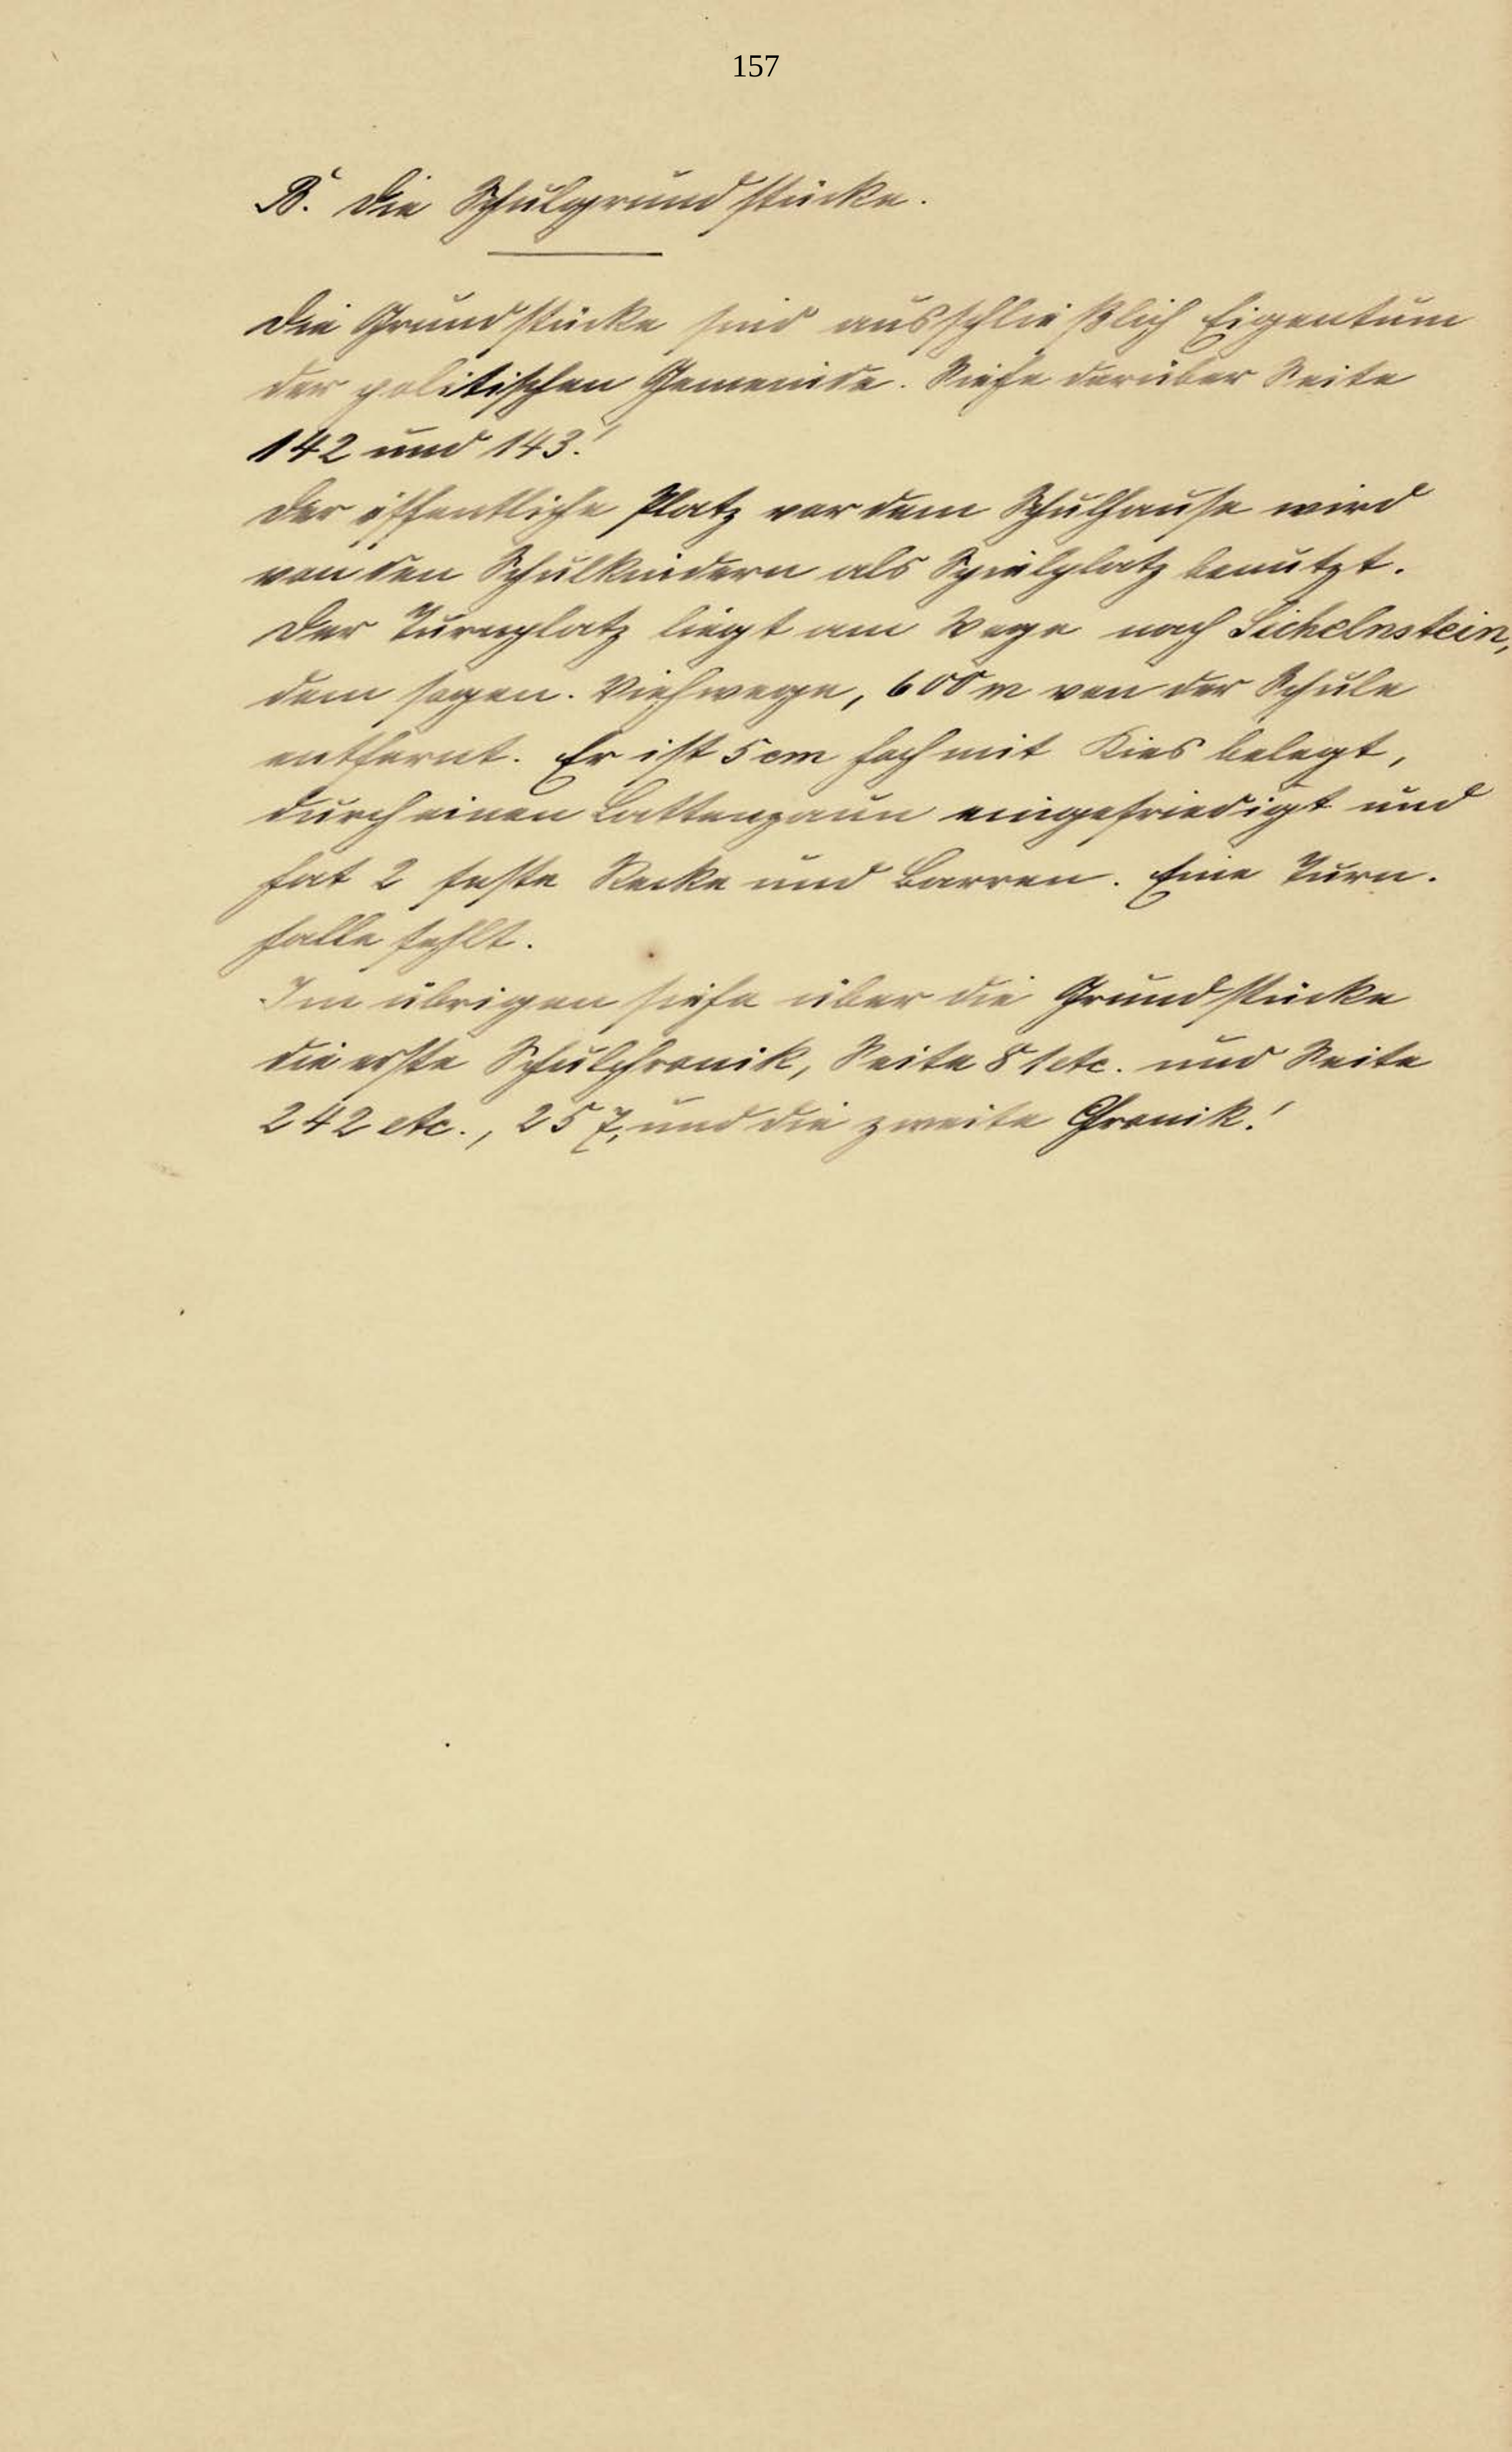 157
B. Die Schulgrundstücke.
Die Grundstücke sind ausschließlich Eigentum
der politischen Gemeinde. Siehe darüber Seite
142 und 143!
Der öffentliche Platz vor dem Schulhause wird
von den Schulkindern als Spielplatz benutzt.
Der Turnplatz liegt am Wege nach Sichelnstein,
dem sogen. Viehwege, 600 m von der Schule
entfernt. Er ist 5 cm hoch mit Kies belegt,
durch einen Lattenzaun eingefriedigt und
hat 2 feste Recke und Barren. Eine Turn-
halle fehlt.
Im übrigen siehe über die Grundstücke
die erste Schulchronik, Seite 81 etc. und Seite
242 etc., 257, und die zweite Chronik!